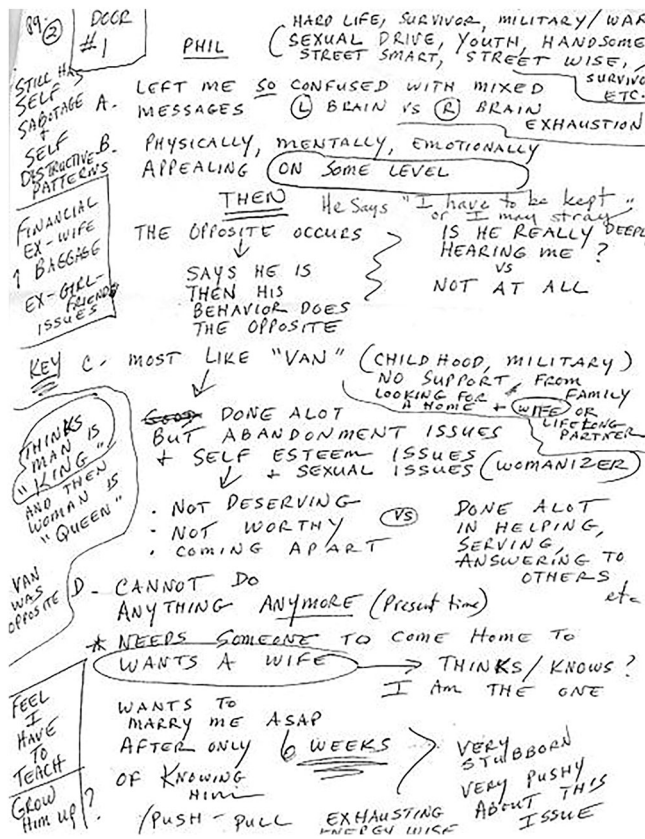 89. ②
DOOR
#1
PHIL
HARD LIFE, SURVIVOR, MILITARY/WAR
(SEXUAL DRIVE, YOUTH, HANDSOME
STREET SMART, STREET WISE,
SURVIVOR
ETC.
STILL HAS
SELF
SABOTAGE
+
SELF
DESTRUCTIVE
PATTERNS
A. LEFT ME SO CONFUSED WITH MIXED
MESSAGES Ⓛ BRAIN VS Ⓡ BRAIN
EXHAUSTION
B. PHYSICALLY, MENTALLY, EMOTIONALLY
APPEALING ON SOME LEVEL
THEN
He Says "I have to be kept"
or I may stray
FINANCIAL
EX-WIFE
↑ BAGGAGE
EX-GIRL-
FRIENDS
ISSUES
THE OPPOSITE OCCURS
SAYS HE IS
THEN HIS
BEHAVIOR DOES
THE OPPOSITE
IS HE REALLY DEEPLY
HEARING ME?
VS
NOT AT ALL
KEY C. MOST LIKE "VAN" (CHILDHOOD, MILITARY)
NO SUPPORT FROM
FAMILY
LOOKING FOR
A HOME + WIFE OR
LIFELONG
PARTNER
DONE ALOT
BUT ABANDONMENT ISSUES
+ SELF ESTEEM ISSUES
+ SEXUAL ISSUES (WOMANIZER)
THINKS
MAN IS
"KING"
AND THEN
WOMAN IS
"QUEEN"
VAN
WAS
OPPOSITE
· NOT DESERVING
· NOT WORTHY
· COMING APART
VS
DONE ALOT
IN HELPING,
SERVING,
ANSWERING TO
OTHERS
etc
D - CANNOT DO
ANYTHING ANYMORE (Present time)
* NEEDS SOMEONE TO COME HOME TO
WANTS A WIFE → THINKS/KNOWS?
I AM THE ONE
FEEL
I
HAVE
TO
TEACH
GROW
HIM UP?
WANTS TO
MARRY ME ASAP
AFTER ONLY 6 WEEKS
OF KNOWING
HIM
VERY
STUBBORN
VERY PUSHY
ABOUT THIS
ISSUE
/PUSH - PULL EXHAUSTING
ENERGY WISE